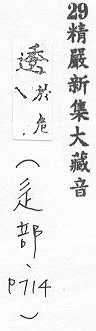 29精嚴新集大藏音
於危
(辵部、p714)